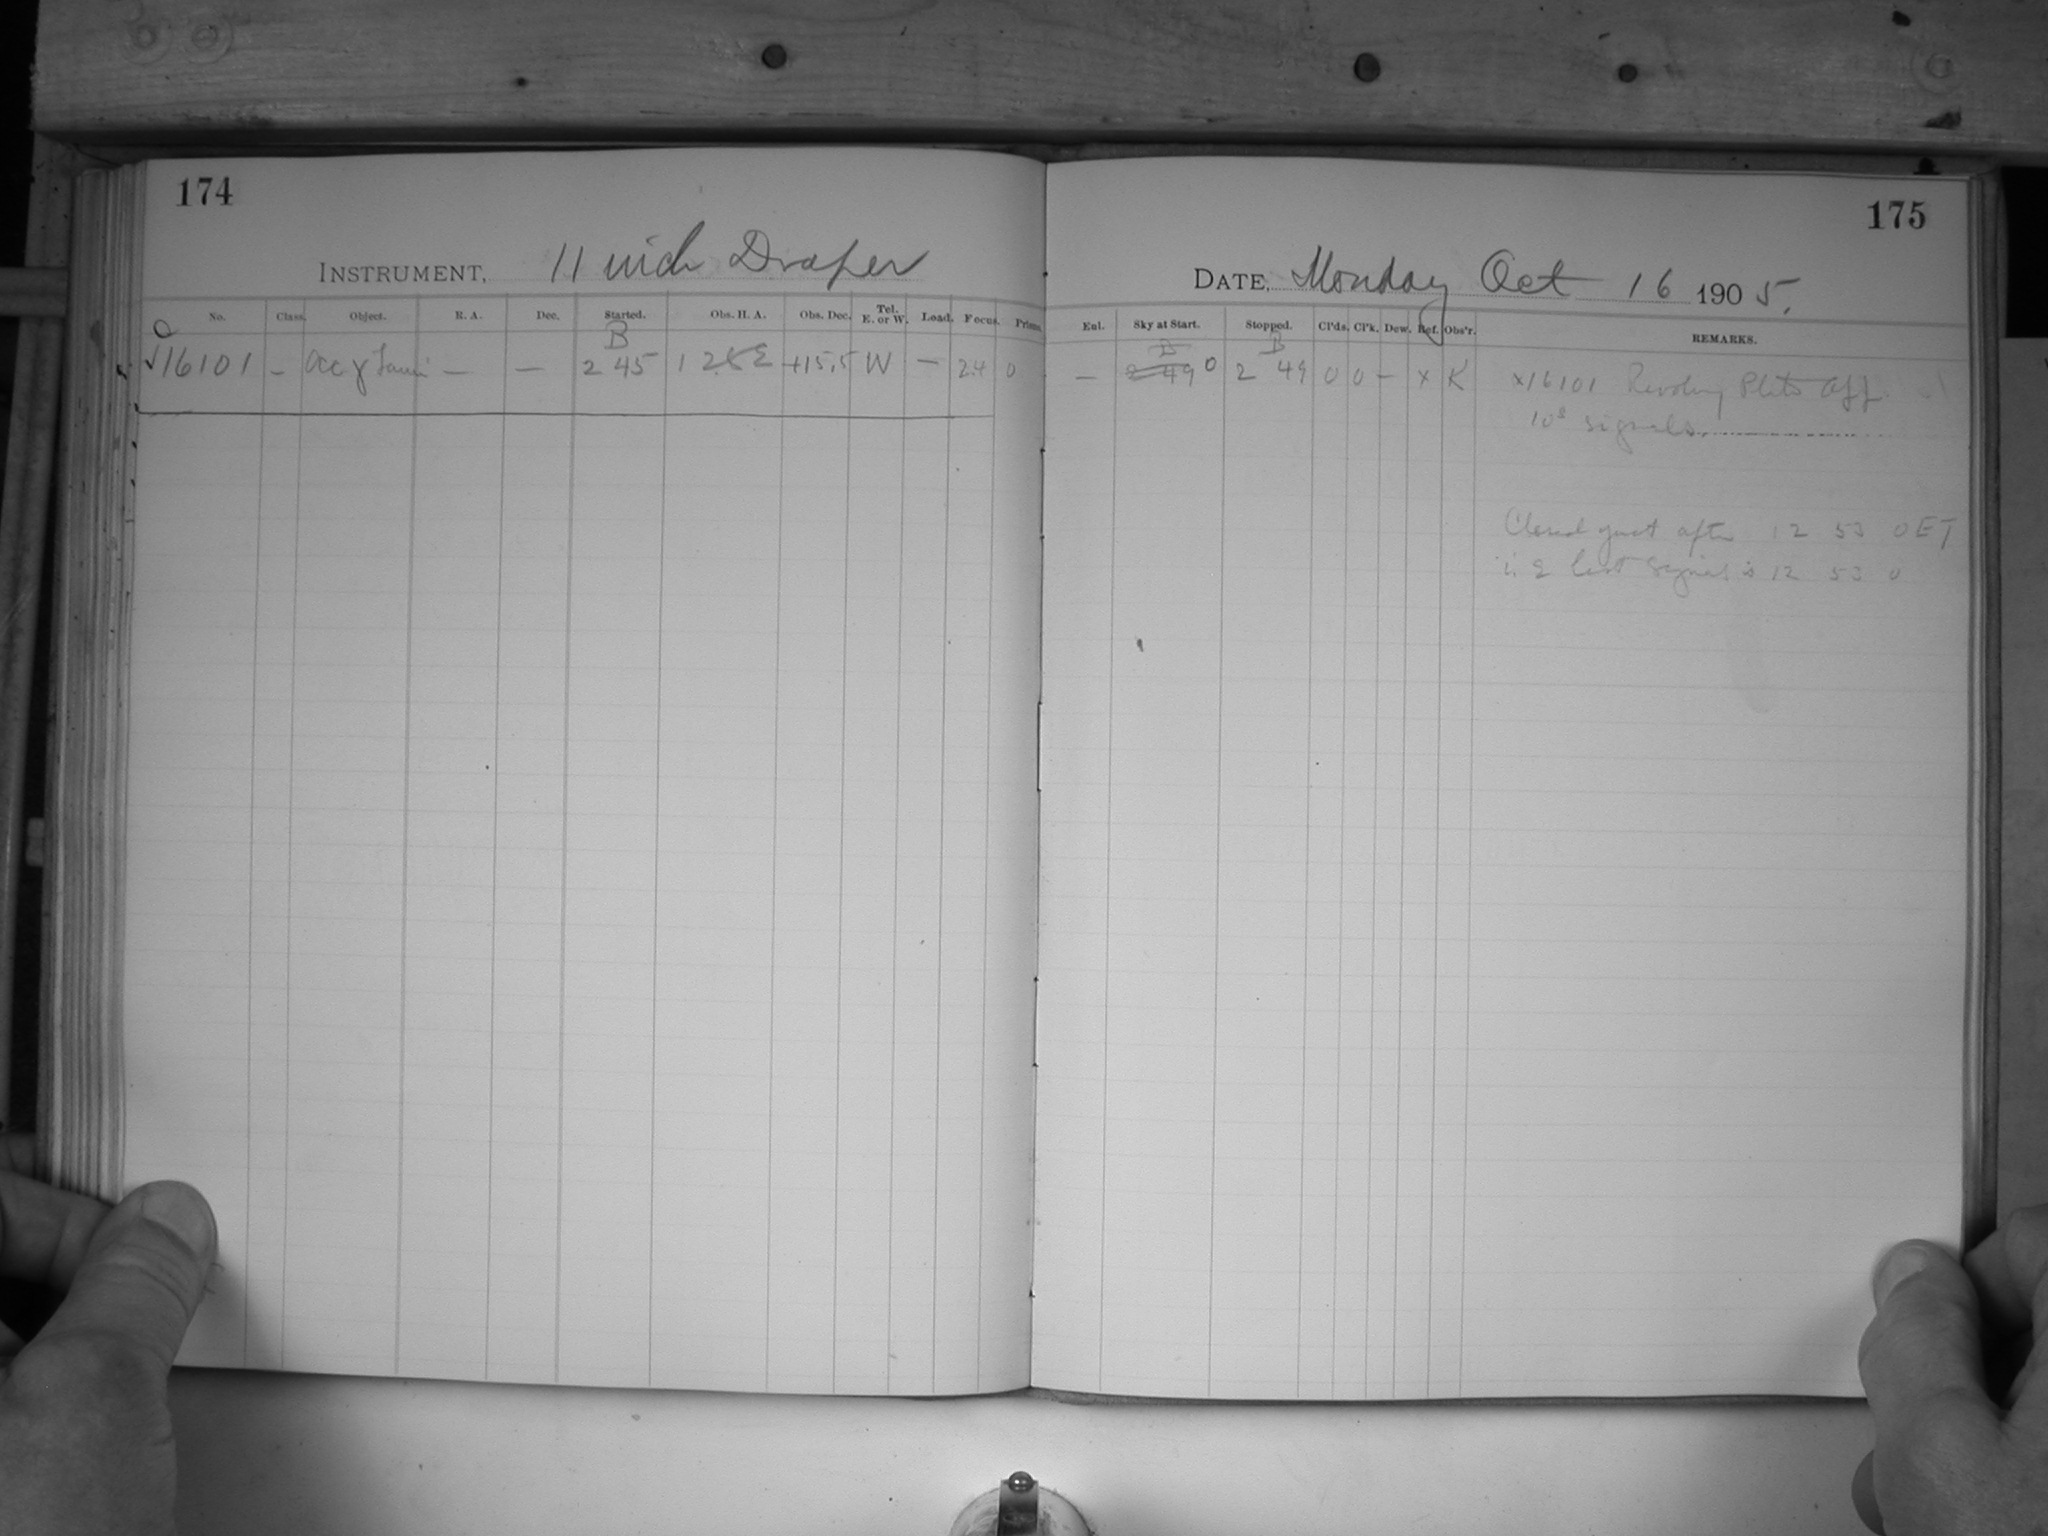 174
INSTRUMENT, 11 inch Draper
No. Class. Object. R. A. Dec. Started. Obs. H. A. Obs. Dec. Tel. E. or W. Load. Focus. Prisms.
B
√16101 – Occ γ Tauri — — 2 45 1 2 E +15.5 W — 2.4 0
175
DATE, Monday Oct 16 1905.
Enl. Sky at Start. Stopped. Cl'ds. Cl'k. Dew. Ref. Obs'r. REMARKS.
B B
— 2 49 0 2 49 0 0 – x K x16101 Revolving Plate Aff.
10s signals.
Closed just after 12 53 0 ET
i.e. last signal is 12 53 0